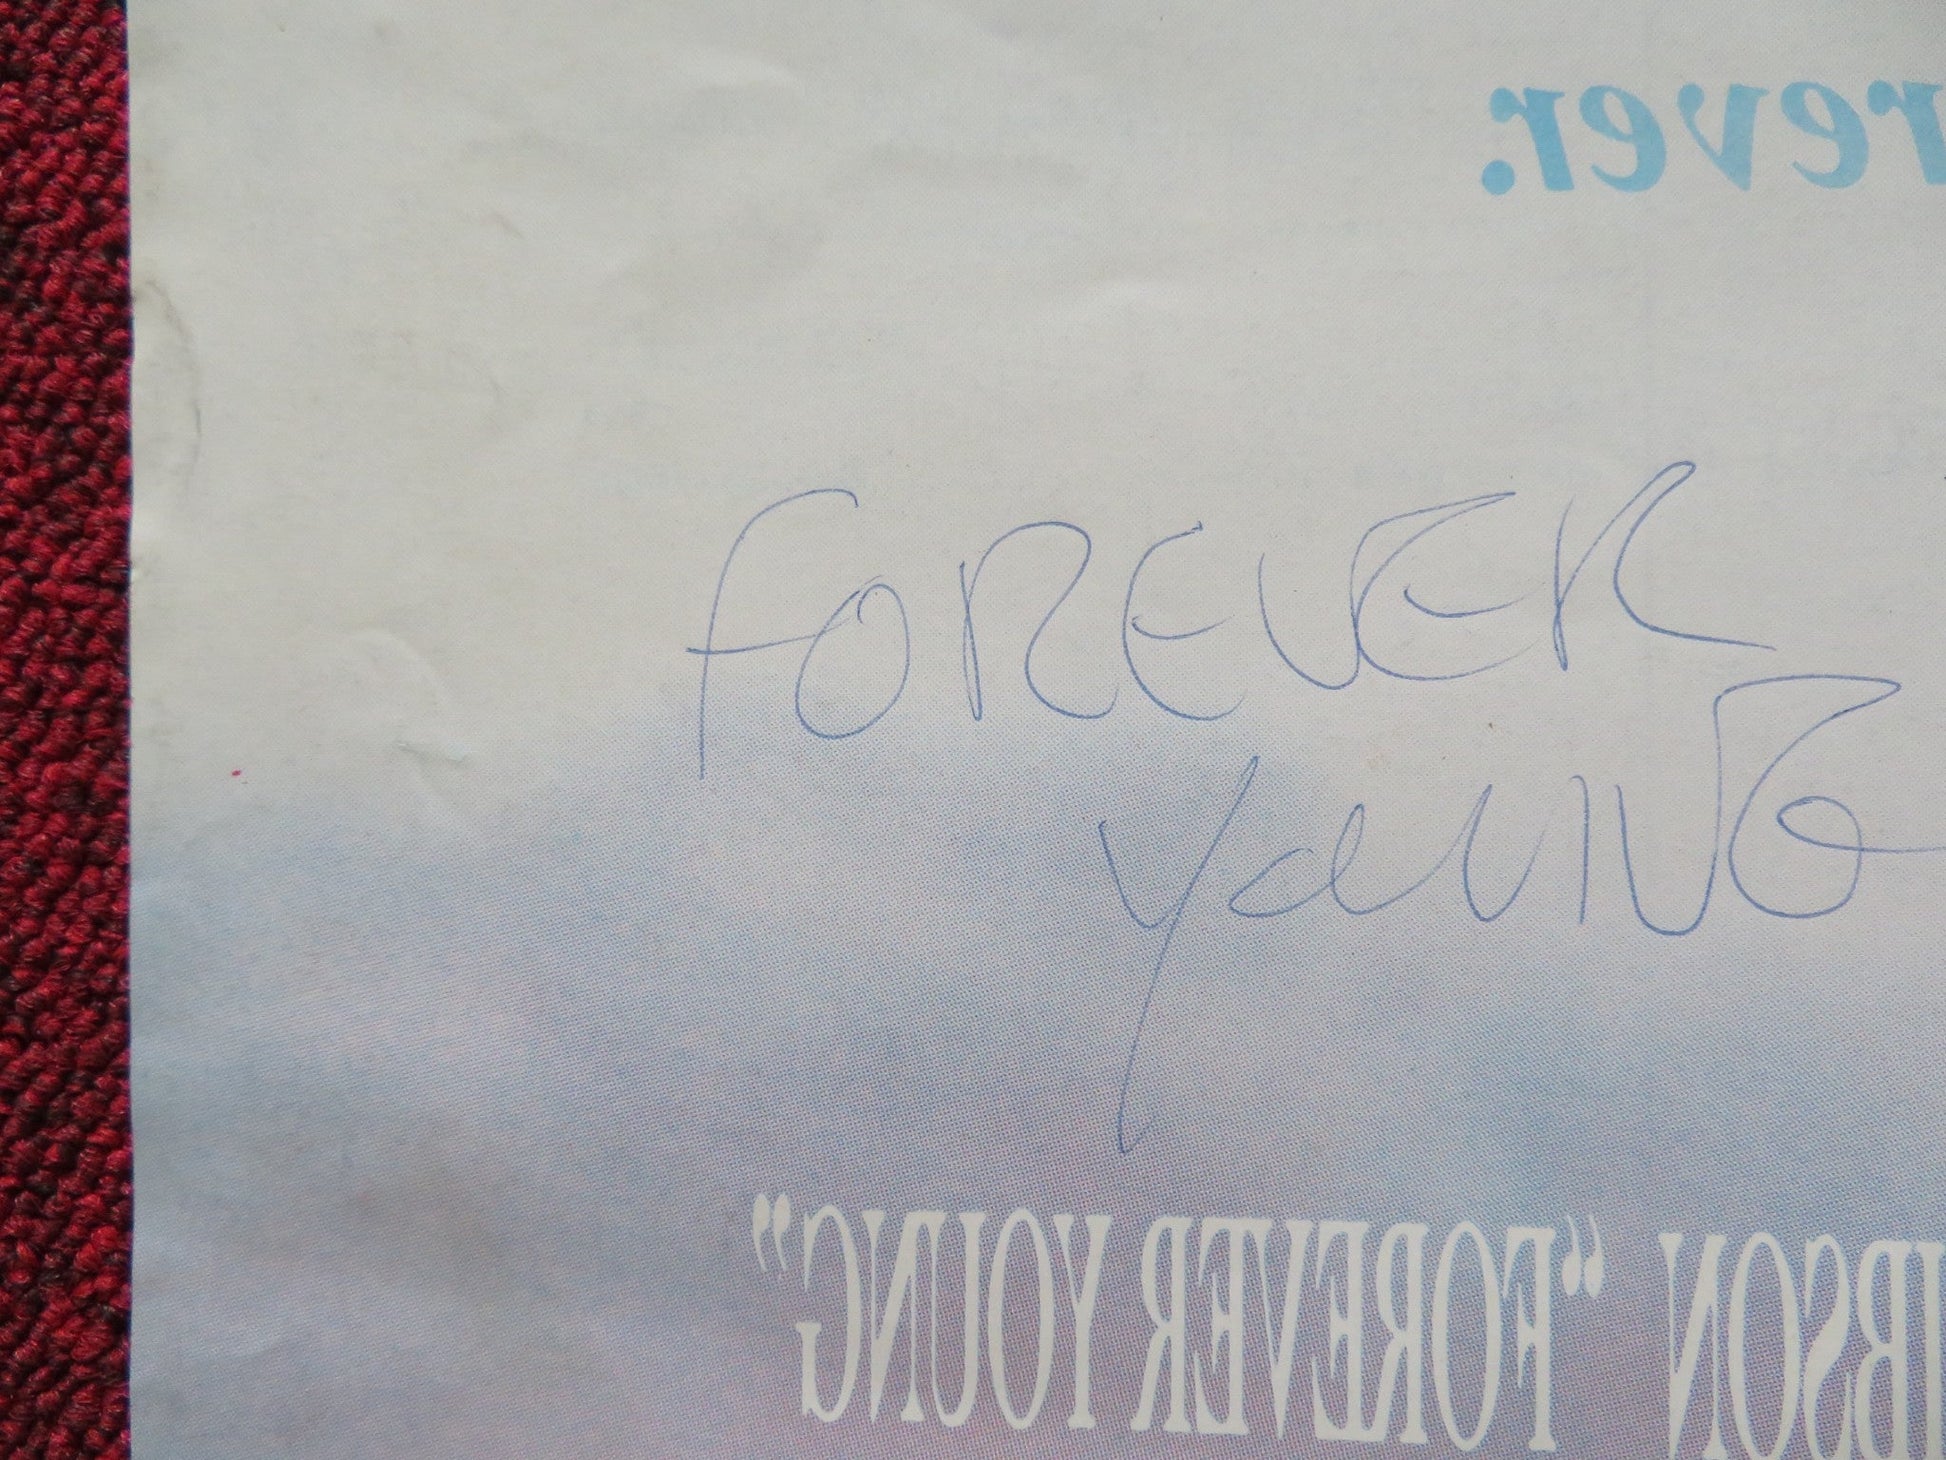 rever.
FOREVER
YOUNG
IBSON "FOREVER YOUNG"